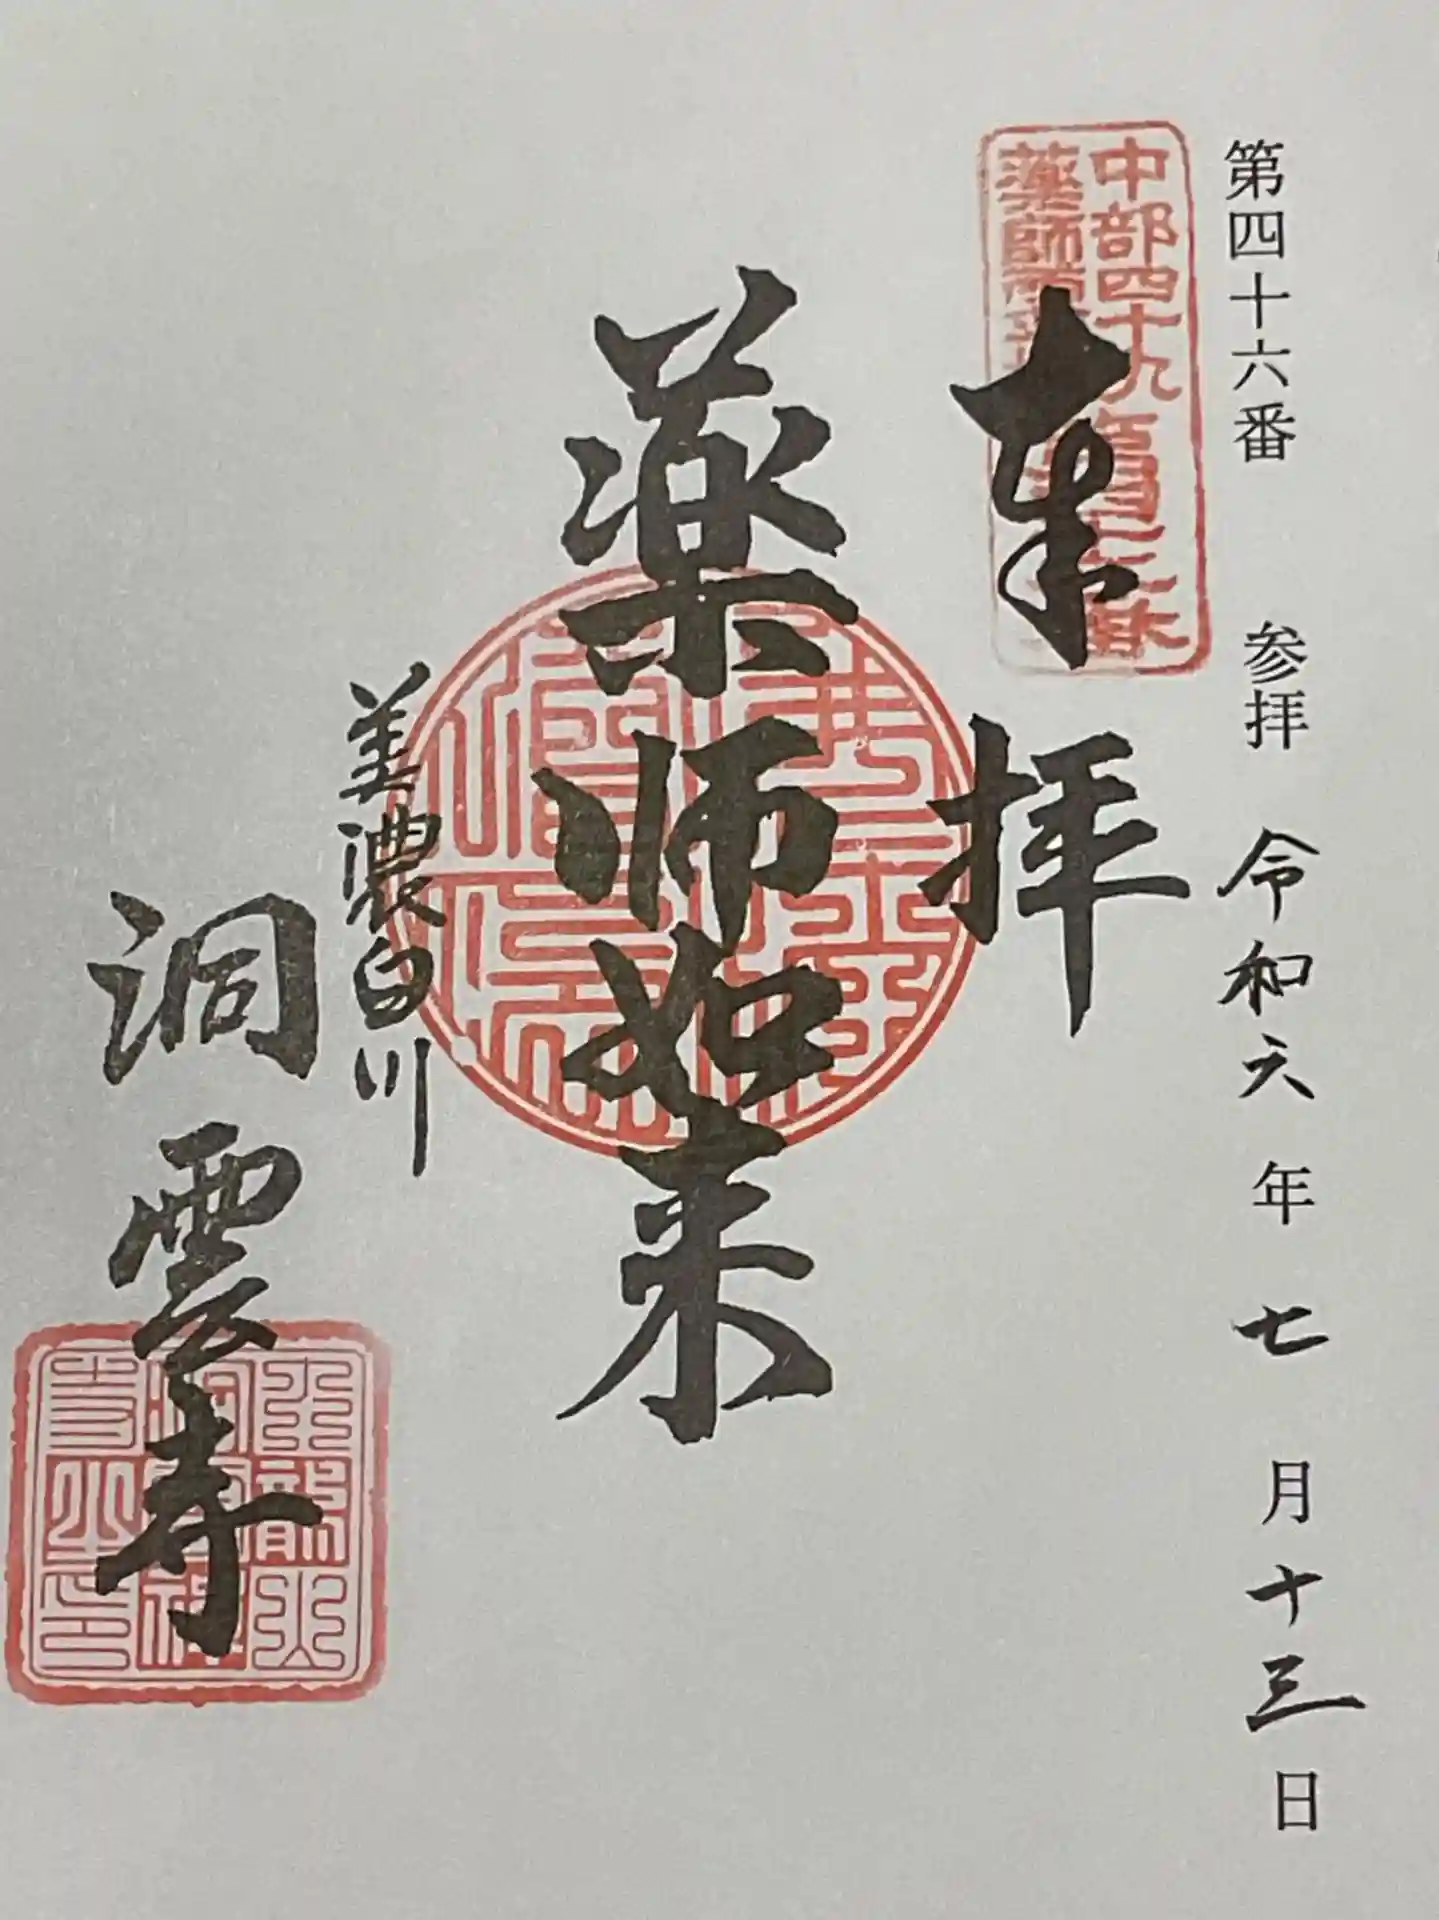 第四十六番 参拝 令和六年七月十三日
中部四十九
薬師
奉拝
薬师如来
美濃白川
洞雲寺